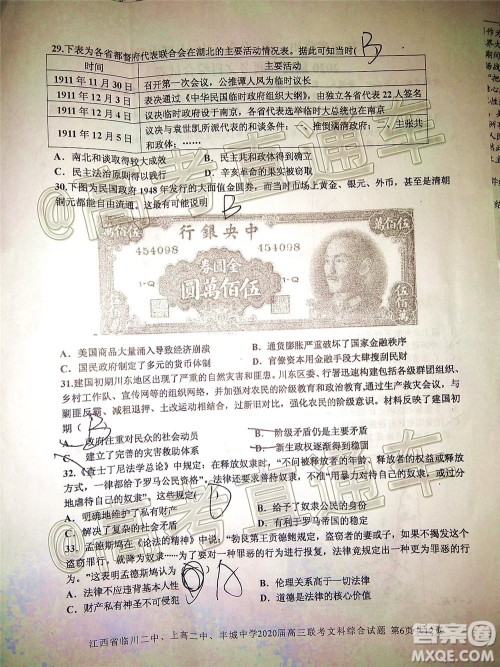 29.下表为各省都督府代表联合会在湖北的主要活动情况表。据此可知当时( B
时间 主要活动
1911 年 11 月 30 日 召开第一次会议，公推谭人凤为临时议长
1911 年 12 月 3 日 表决通过《中华民国临时政府组织大纲》，由独立各省代表 22 人签名
1911 年 12 月 4 日 议决临时政府设于南京，各省代表选举临时大总统也在南京
1911 年 12 月 5 日 议决与袁世凯所派代表的和谈条件：、、推倒满清；、、主张共和政体；……
A．南北和谈取得较大成效 B．民主共和政体得到确立
C．民主法治原则得以践行 D．辛亥革命的果实被窃取
30.下图为民国政府 1948 年发行的大面值金圆券，而当时市场上黄金、银元、外币，甚至是清朝
铜元都能自由流通。这最有可能说明 B
中央银行
伍佰萬
伍佰萬
454098 454098
金圆券
1-Q 1-Q
伍佰萬圓
A．美国商品大量涌入导致经济崩溃 B．通货膨胀严重破坏了国家金融秩序
C．国民政府制定了多元的货币体制 D．官僚资本用金融手段大肆搜刮民财
31.建国初期川东地区出现了严重的自然灾害和匪患。川东区委、行署迅速构建包括各级群团组织、
乡村工作队、宣传网等的组织网络，并加强对农民的阶级教育和政治教育，通过生产救灾会议，与
剿匪反霸、减租退押、土改运动相结合，过新旧对比，强烈激发农民的政治意识。材料反映了建国初
期( B
A．政府注重对民众的社会动员 B．阶级矛盾仍是主要矛盾
C．建立了完善的灾害救助体系 D．新生政权巩固得不稳固
32.《查士丁尼法学总论》中规定：在释放奴隶时，“不问被释放者的年龄、释放者的权力或释放
方式，一律都给予罗马公民资格”，法律还要求善待奴隶，“不许主人在法律许可的范围之外，过分
地虐待自己的奴隶”。这些规定( D
A．明确地维护了私有财产 B．给予了奴隶的公民地位
C．解决了复杂的社会矛盾 D．有利于罗马帝国的稳定
33.孟德斯鸠在《论法的精神》中说：“勃艮第王贡德鲍规定，盗窃者的妻或子，如果不揭发这个
盗窃罪行，就降为奴隶。这项法律是违反人性的。妻子怎能告发她的丈夫？儿子怎能告发他的父亲？
……”这表明孟德斯鸠认为( A
A．法律不应违背基本人性 B．伦理关系高于一切法律
江西省临川二中、上高二中、丰城中学2020届高三联考文科综合试题